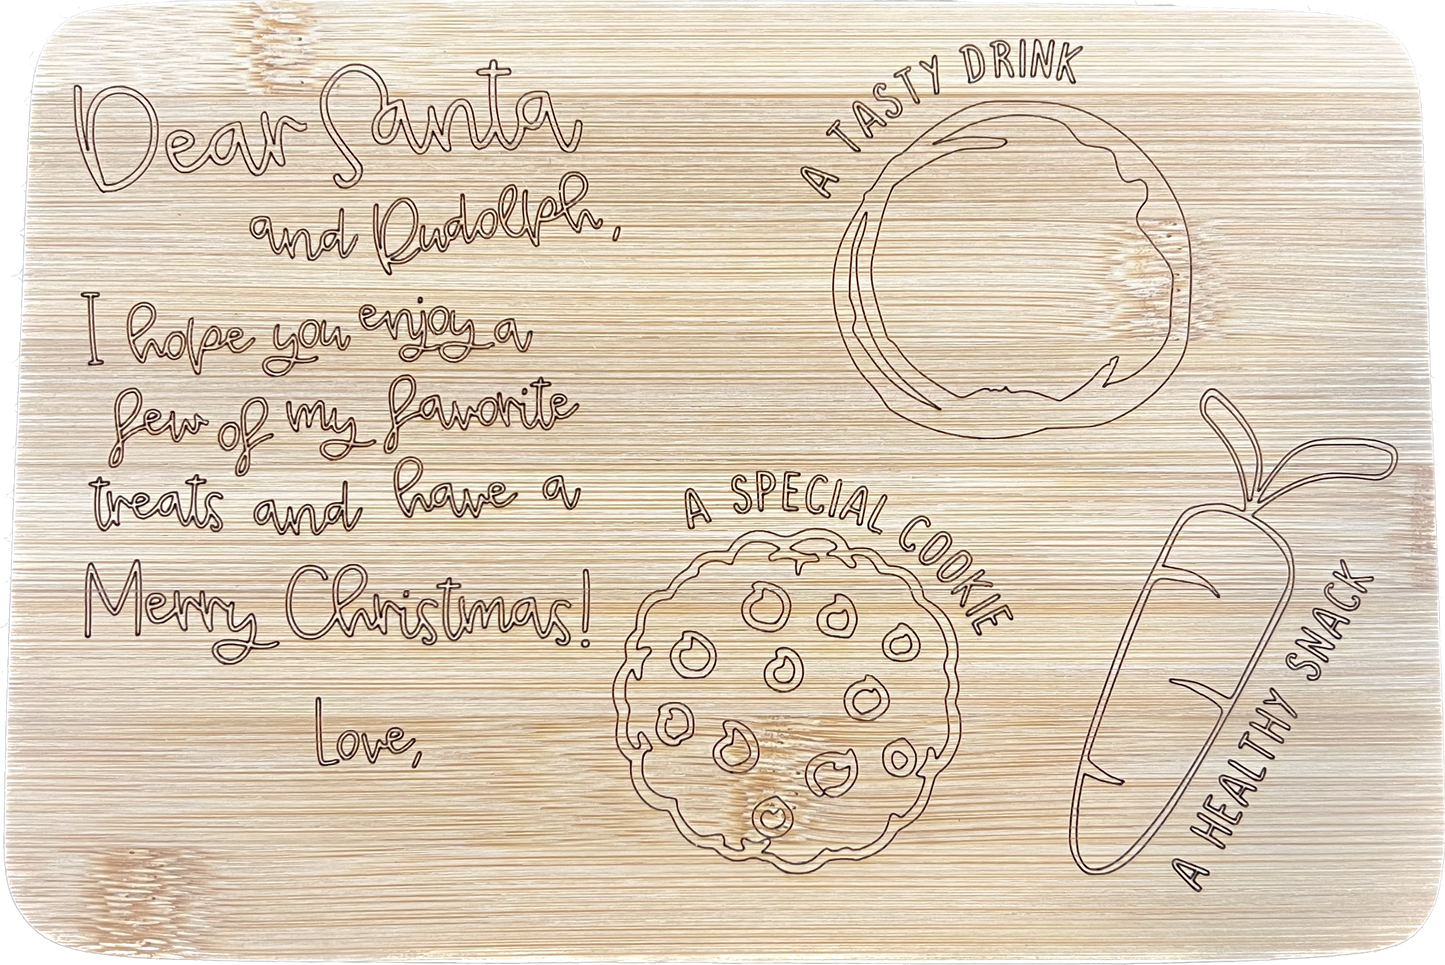 Dear Santa
and Rudolph,
I hope you enjoy a
few of my favorite
treats and have a
Merry Christmas!
Love,
A TASTY DRINK
A SPECIAL COOKIE
A HEALTHY SNACK